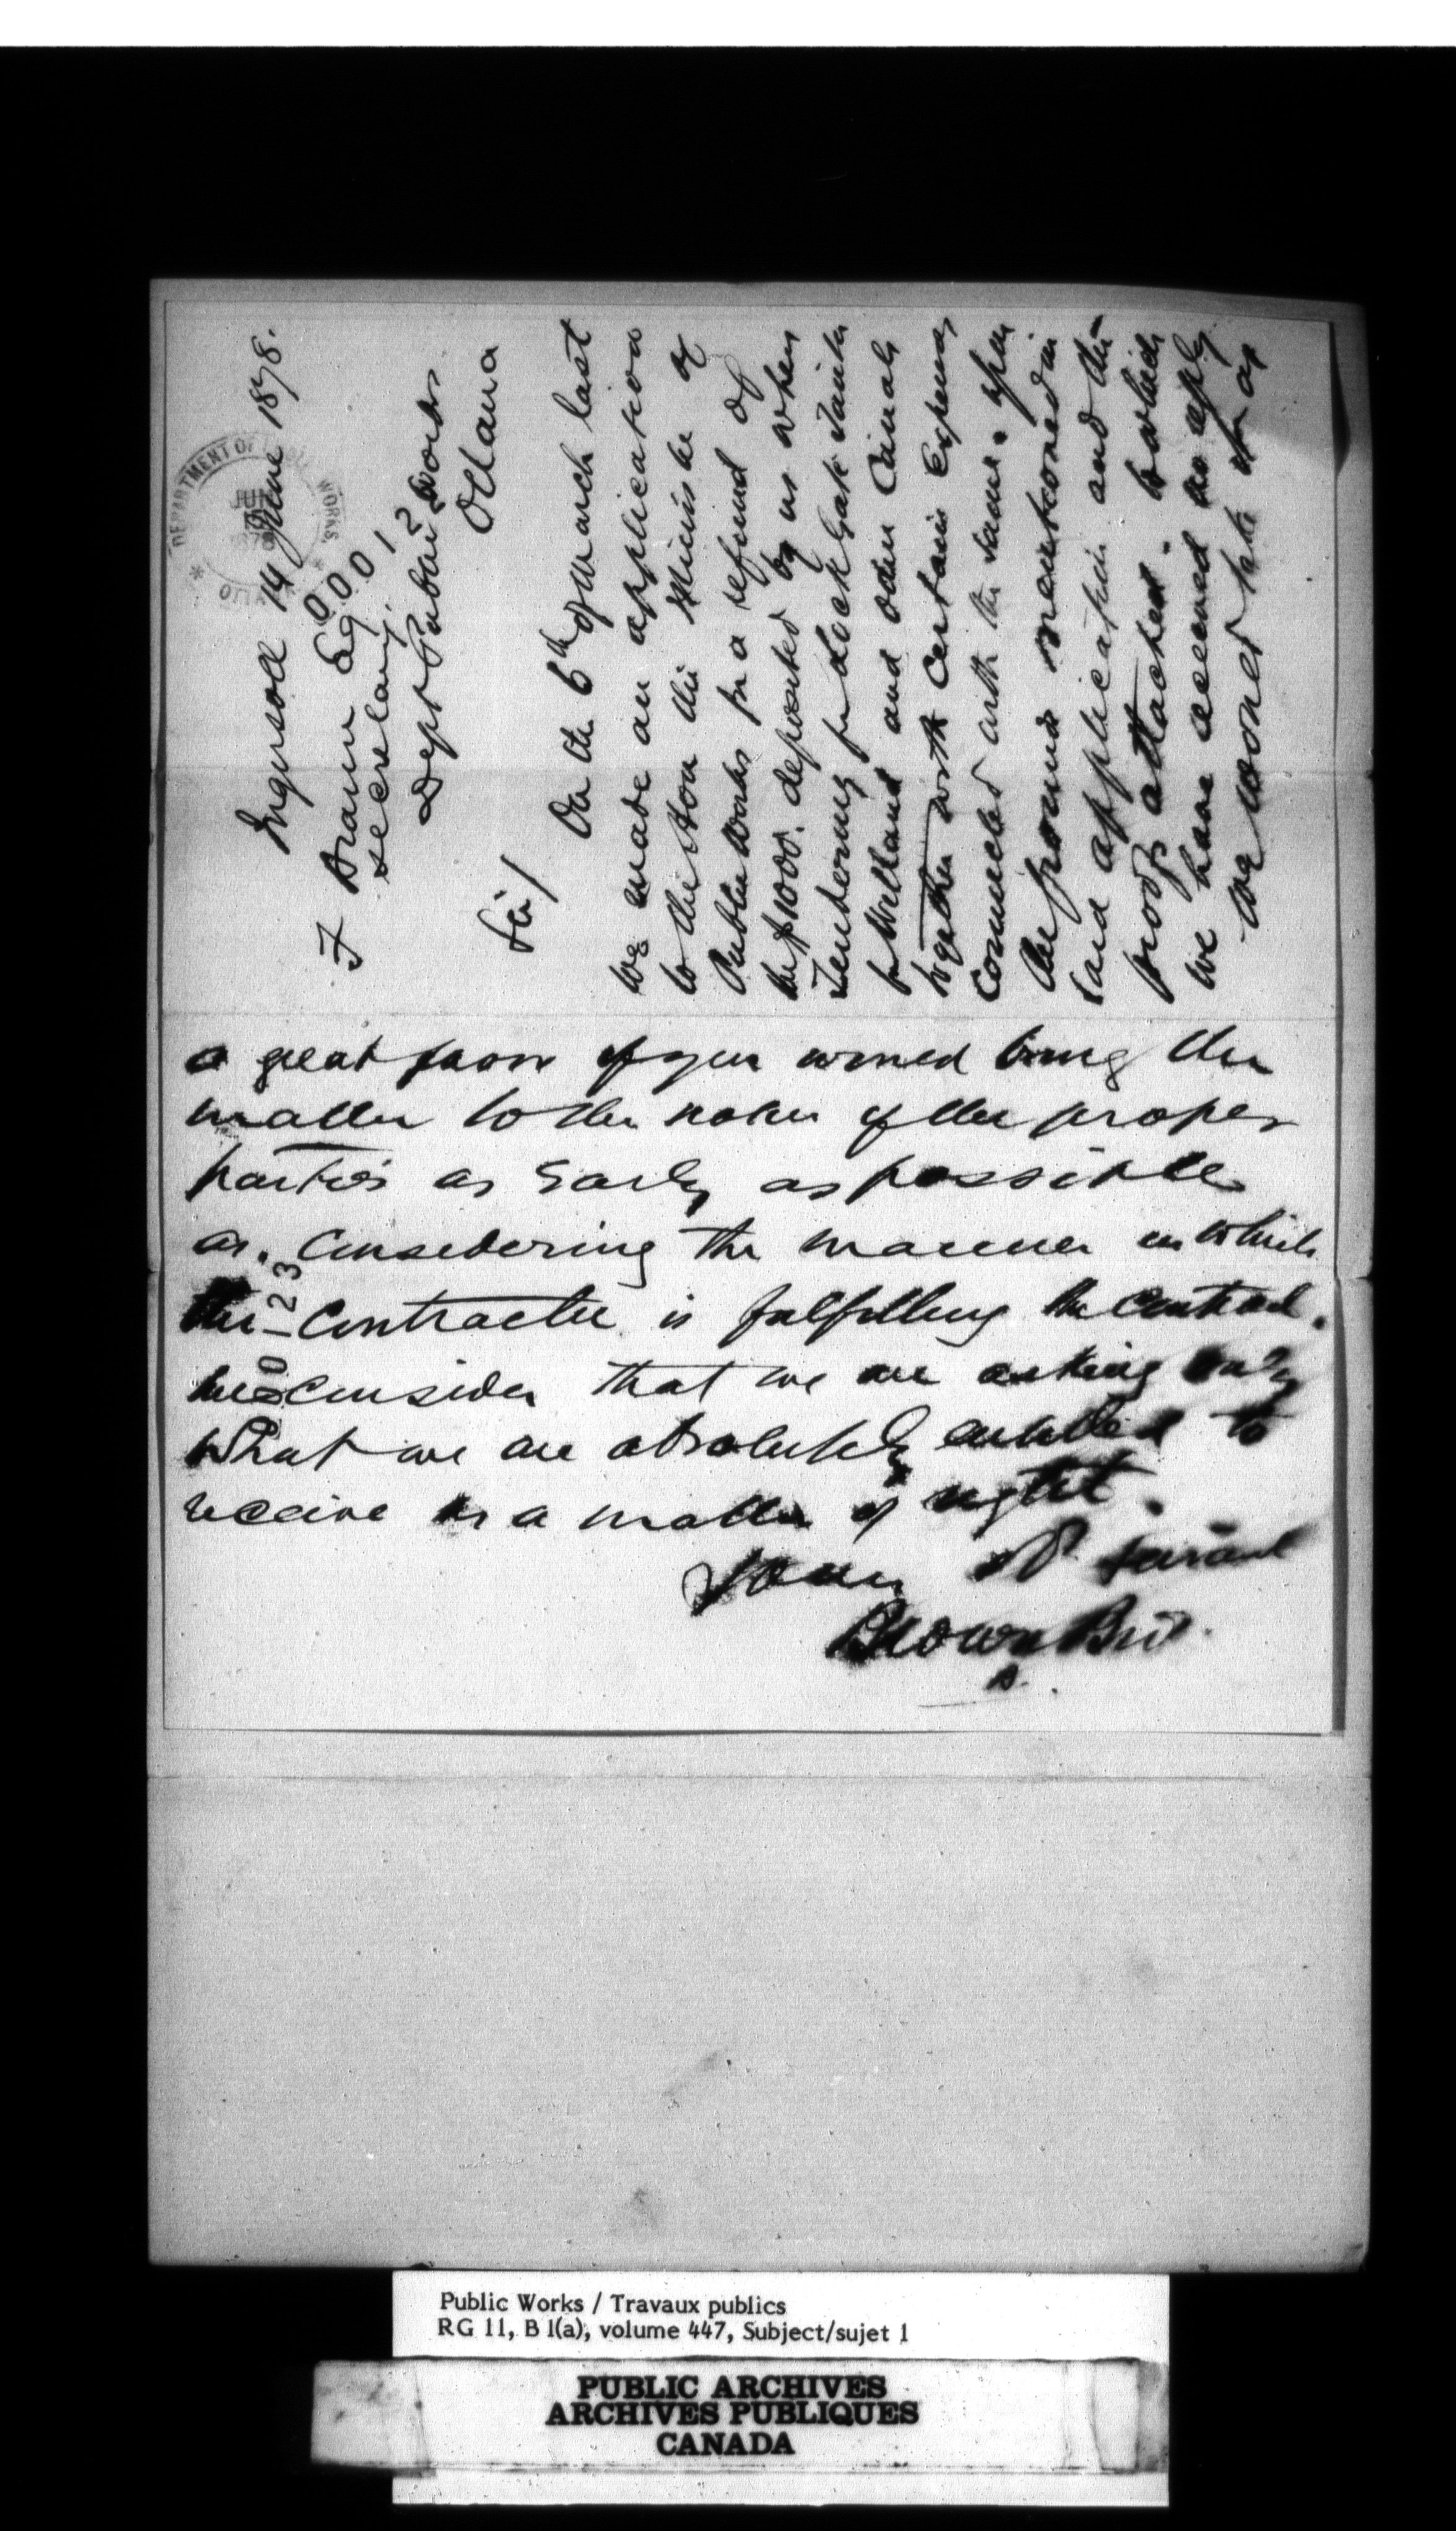 Ingersoll 14 June 1878.
DEPARTMENT OF PUBLIC WORKS.
JUN
1878
OTTAWA
60012
F Braun Esq
Secretary
Dept Public Works
Ottawa
Sir/
On the 6th of March last
we made an application
to the Hon the Minister of
Public Works for a refund of
the $1000. deposited by us when
Tendering for Lock Gate Timber
for Welland and other Canals
together with certain Expenses
connected with the same. upon
the grounds mentioned in
said application and the
proofs attached. to which
we have received no reply
We would take it as
a great favor if you would bring the
matter to the notice of the proper
parties as Early as possible
as. Considering the manner in which
the Contractor is fulfilling the contract.
we consider that we are asking only
what we are absolutely entitled to
receive as a matter of right.
Your Ob Servant
Brown Bro
Public Works / Travaux publics
RG 11, B 1(a), volume 447, Subject/sujet 1
PUBLIC ARCHIVES
ARCHIVES PUBLIQUES
CANADA